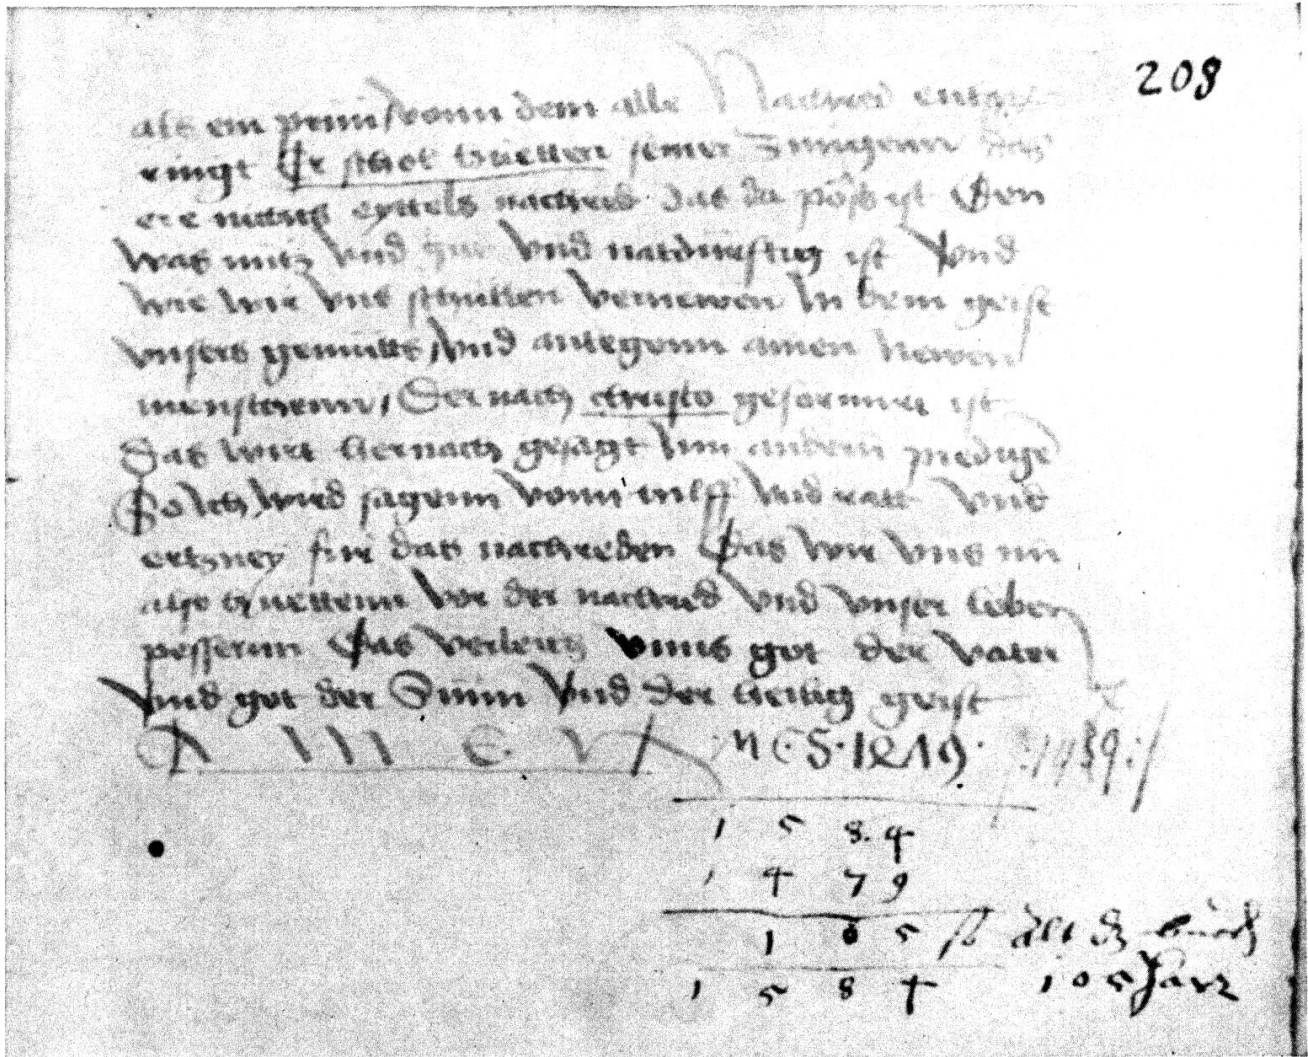 208
als ein prun / vonn dem alle Nachred
ringt Er schol huetten seiner Zungenn das
ere nichts eyttels nachred das da pöß ist Den
Was nütz vnd gut vnd ist Vnd
wie wir vns schullen vernewen In dem geist
vnsers gemütts / vnd anlegenn ainen newen
menschenn / Der nach christo geformirt ist
Das wirt hernach gesagt Inn andern predige
So ich wird sagenn vonn hilff vnd ratt vnd
ertzney für das nachreden Das wir vns nu
also huettenn vor der nachred vnd vnser leben
pessernn Das verleich vnns got der vater
Vnd got der Sunn Vnd der heilig geist
A M E N
1 5 8 4
1 4 7 9
1 0 5 alt dz buech
1 5 8 4 105 Jarr